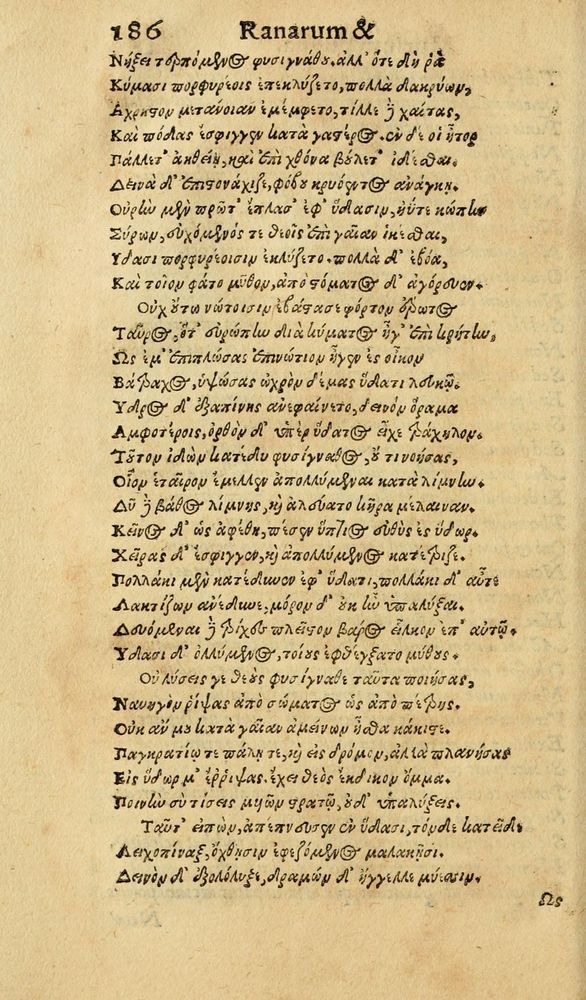 186 Ranarum &
Νήξει τερπόμενος φυσιγνάθου. ἀλλ' ὅτε δή ῥα
Κύμασι πορφυρέοις ἐπεκλύζετο, πολλὰ δακρύων,
Αχρηστον μετάνοιαν ἐμέμφετο, τίλλε δὲ χαίτας,
Καὶ πόδας ἐσφιγγεν κατὰ γαστέρος. ἐν δέ οἱ ἦτορ
Πάλλετ' ἀηθείῃ, καὶ ἐπὶ χθόνα βούλετ' ἰδέσθαι.
Δεινὰ δ' ἐπεστονάχιζε, φόβου κρυόεντος ἀνάγκη.
Οὐρὴν μὲν πρῶτ' ἔπλασ' ἐφ' ὕδασιν, ἠΰτε κώπην
Σύρων, εὐχόμενός τε θεοῖς ἐπὶ γαῖαν ἱκέσθαι,
Υδασι πορφυρέοισιν ἐκλύζετο. πολλὰ δ' ἐβόα,
Καὶ τοῖον φάτο μῦθον, ἀπὸ στόματος δ' ἀγόρευεν.
Οὐχ οὕτω νώτοισιν ἐβάστασε φόρτον ἔρωτος
Ταῦρος, ὅτ' εὐρώπην διὰ κύματος ἦγ' ἐπὶ κρήτην,
Ως ἔμ' ἐπιπλώσας ἐπινώτιον ἦγεν ἐς οἶκον
Βάτραχος, ὑψώσας ὠχρὸν δέμας ὕδατι λευκῷ.
Υδρος δ' ἐξαπίνης ἀνεφαίνετο, δεινὸν ὅραμα
Αμφοτέροις, ὀρθὸν δ' ὑπὲρ ὕδατος εἶχε τράχηλον.
Τοῦτον ἰδὼν κατέδυ φυσίγναθος, οὔ τι νοήσας,
Οἷον ἑταῖρον ἔμελλεν ἀπολλύμεναι κατὰ λίμνην.
Δῦ δὲ βάθος λίμνης, καὶ ἀλεύατο κῆρα μέλαιναν.
Κεῖνος δ' ὡς ἀφέθη, πέσεν ὕπτιος εὐθὺς ἐς ὕδωρ.
Χεῖρας δ' ἔσφιγγεν, καὶ ἀπολλύμενος κατέτριζε.
Πολλάκι μὲν κατέδυνεν ἐφ' ὕδατι, πολλάκι δ' αὖτε
Λακτίζων ἀνέδυνε, μόρον δ' οὐκ ἦν ὑπαλύξαι.
Δευόμεναι δὲ τρίχες πλεῖστον βάρος εἷλκον ἐπ' αὐτῷ.
Υδασι δ' ὀλλύμενος, τοίους ἐφθέγξατο μύθους.
Οὐ λύσεις γε θεοὺς φυσίγναθε ταῦτα ποιήσας,
Ναυηγὸν ῥίψας ἀπὸ σώματος ὡς ἀπὸ πέτρης.
Οὐκ ἄν μου κατὰ γαῖαν ἀμείνων ἦσθα κάκιστε.
Παγκρατίῳ τε πάλῃ τε, καὶ εἰς δρόμον, ἀλλὰ πλανήσας
Εἰς ὕδωρ μ' ἔρριψας. ἔχει θεὸς ἔκδικον ὄμμα.
Ποινὴν σὺ τίσεις μυῶν στρατῷ, οὐδ' ὑπαλύξεις.
Ταῦτ' εἰπὼν, ἀπέπνευσεν ἐν ὕδασι, τόνδε κατεῖδε
Λειχοπίναξ, ὄχθησιν ἐφεζόμενος μαλακῇσι.
Δεινὸν δ' ἐξολόλυξε, δραμὼν δ' ἤγγελλε μύεσσιν.
Ως